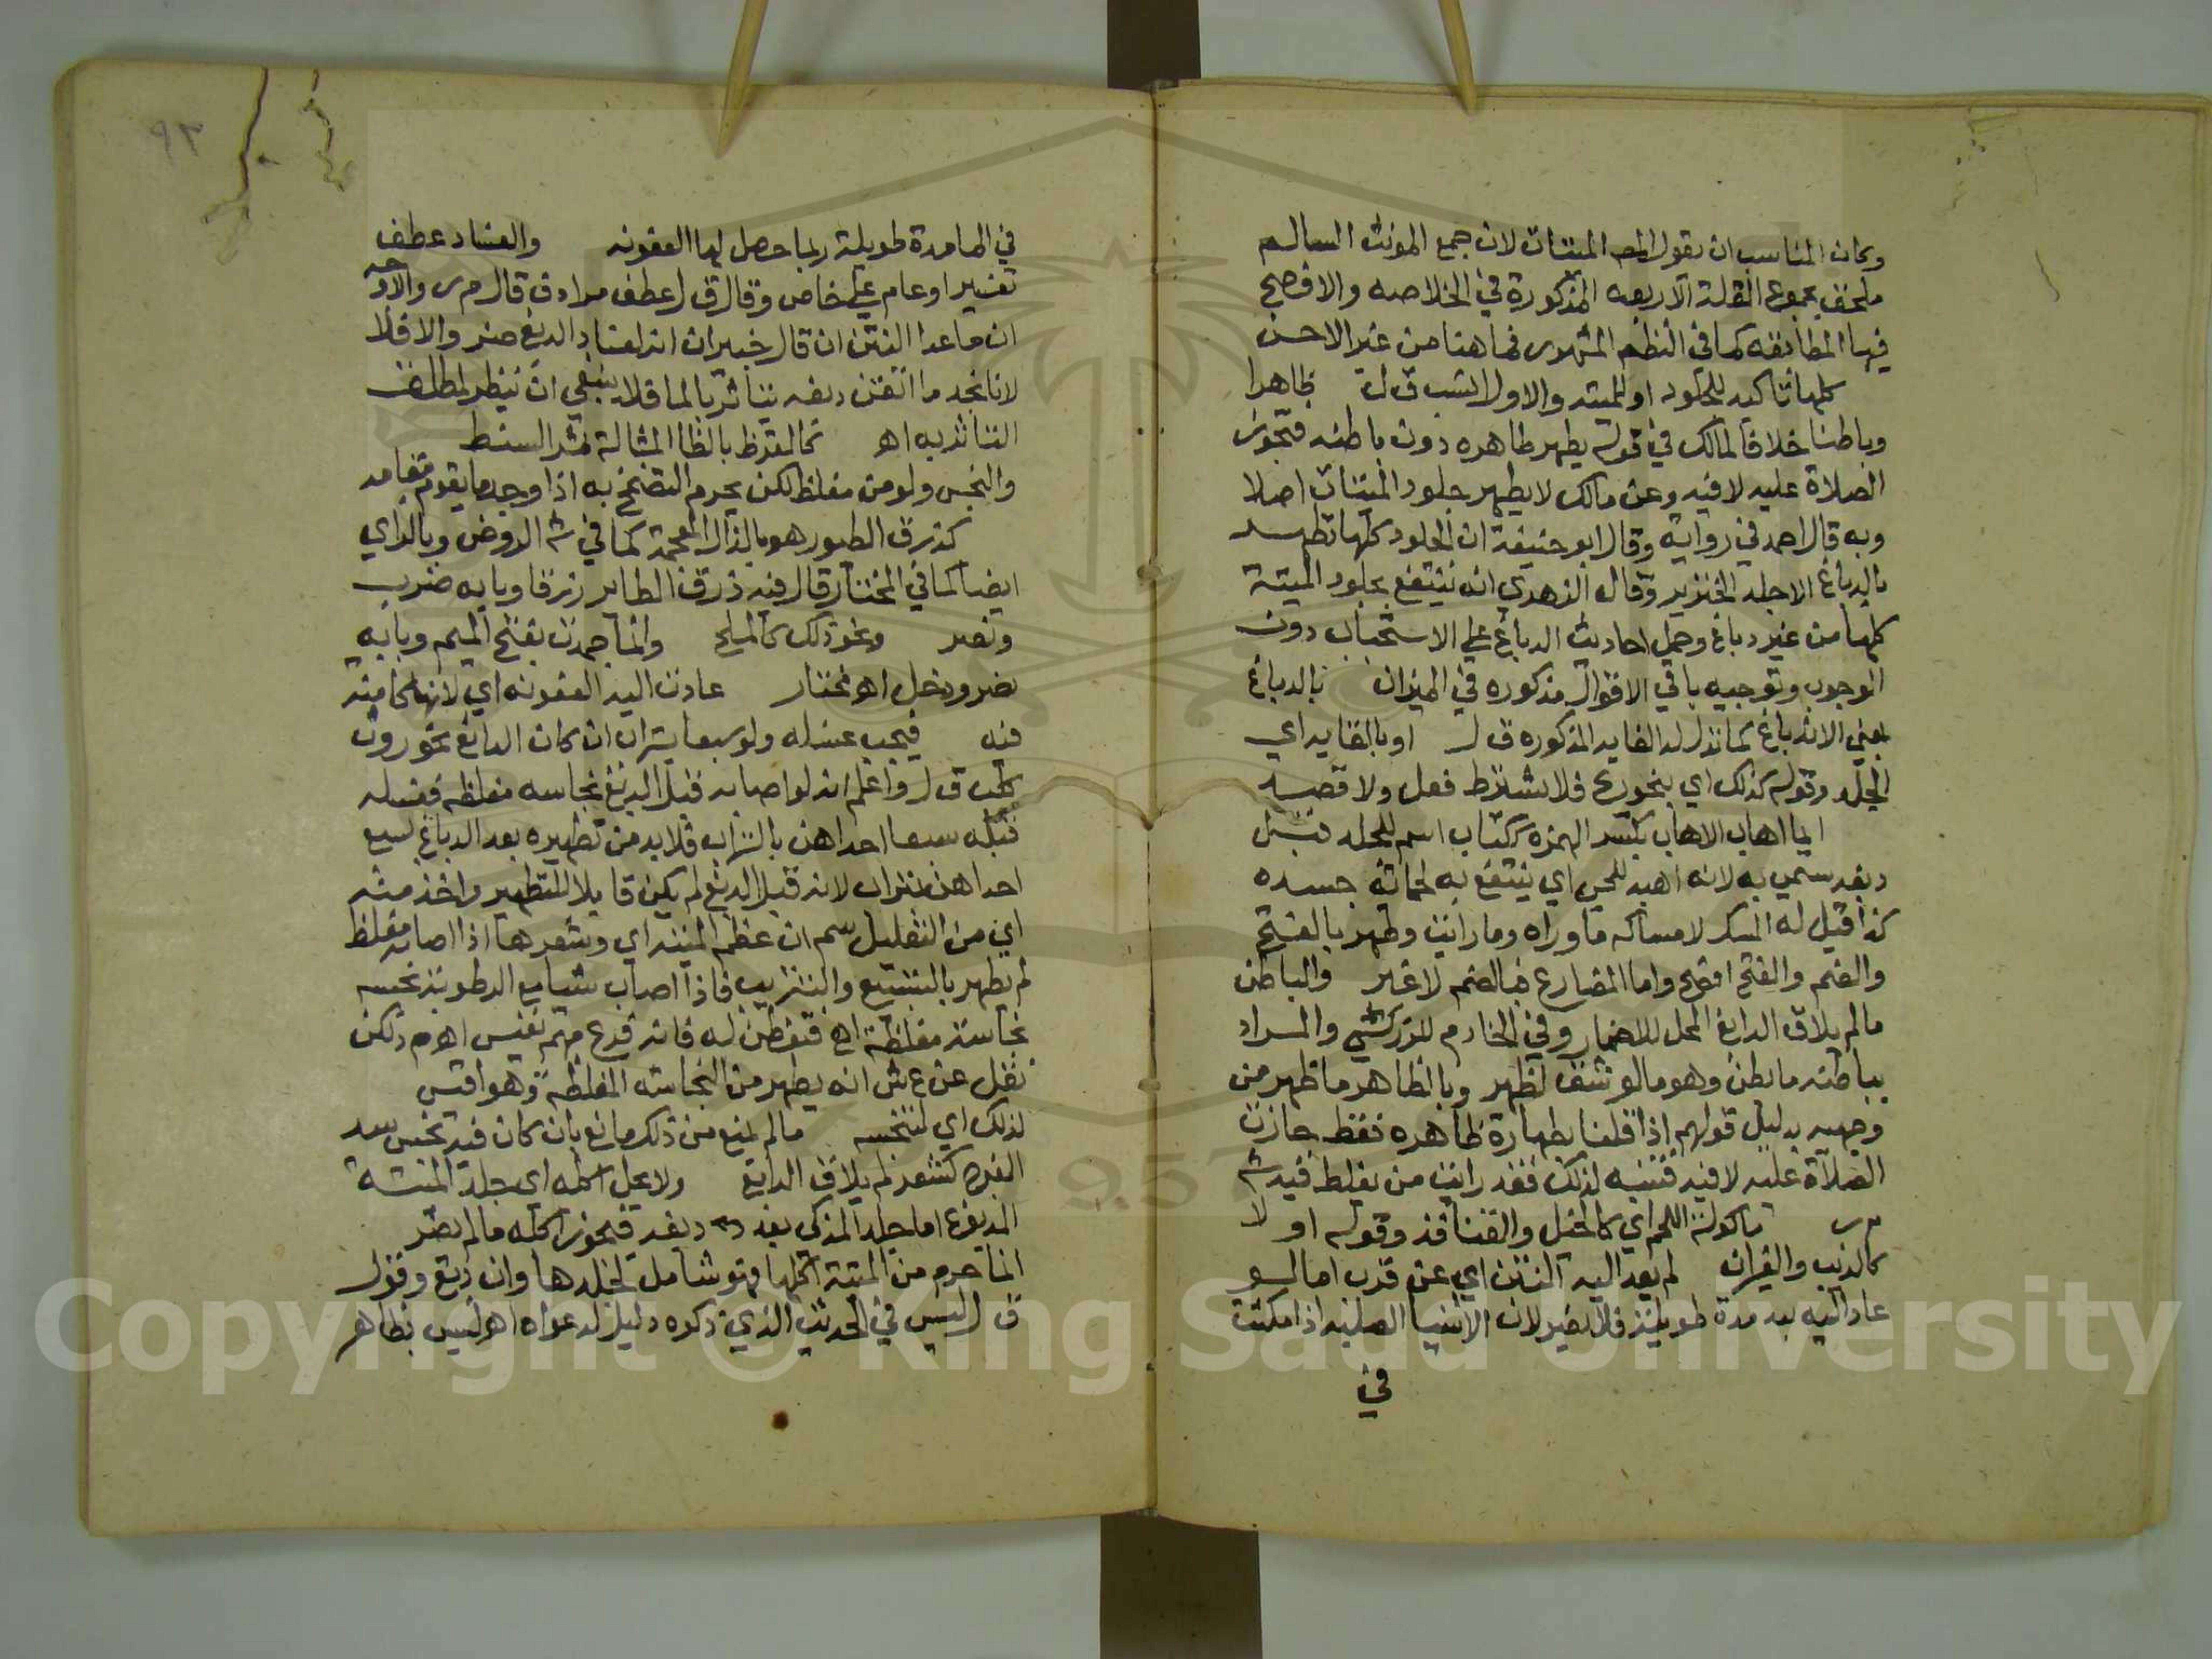 وكان المناسب ان يقول المص الميتات لان جمع المونث السالم
ملحق بجموع القلة الاربعه المذكورة في الخلاصه والافصح
فيها المطابقه كما في النظم المشهور فما هنا من غير الاحسن
كلها تاكيد للجلود او للميته والاول انسب ق ل ظاهرا
وباطنا خلافا لمالك في قوله يطهر ظاهره دون باطنه فتجوز
الصلاة عليه لا فيه وعن مالك لا يطهر جلود الميتات اصلا
وبه قال احمد في رواية وقال ابو حنيفة ان الجلود كلها تطهر
بالدباغ الا جلد الخنزير وقال الزهري انه ينتفع بجلود الميتة
كلها من غير دباغ وحمل احاديث الدباغ على الاستحباب دون
الوجوب وتوجيه باقي الاقوال مذكوره في الميزان بالدباغ
بمعني الاندباغ كما تدل له الغايه المذكوره ق ل او بالقايه اي
الجلد وقوله كذلك اي بنحو ريح فلا يشترط فعل ولا قصد
ايما اهاب الاهاب بكسر الهمزه ككتاب اسم للجلد قبل
دبغه سمي به لانه اهبه للحي اي ينتفع به لحماية جسده
كذا قيل له المسك لامساكه ما وراه وما رايت وطهر بالفتح
والضم والفتح افصح واما المضارع فبالضم لا غير والباطن
ما لم يلاق الدابغ المحل للاضمار وفي الخادم للزركشي والمراد
بباطنه ما بطن وهو ما لو شق لظهر وبالظاهر ما ظهر من
وجهيه بدليل قولهم اذا قلنا بطهارة ظاهره فقط جازت
الصلاة عليه لا فيه فتنبه لذلك فقد رايت من يغلط فيه ش
م ر ماكولة اللحم اي كالخيل والقنافذ وقوله او لا
كالذيب والفيران لم يعد اليه النتن اي عن قرب اما لو
عاد اليه بعد مدة طويلة فلا يضر لان الاشيا الصلبه اذا مكثت
في
٩٣
في الما مدة طويلة ربما حصل لها العفونه والفساد عطف
تفسير او عام علي خاص وقال ق ل عطف مرادف قال م ر والاوجه
ان ما عدا النتن ان قال خبيران انه لفساد الدبغ ضر والا فلا
لانا نجد ما اتقن دبغه يتاثر بالما فلا ينبغي ان ينظر لمطلق
التاثر به اهـ كالقرظ بالظا المشالة مثل السنط
والنجس ولو من مغلظ لكن يحرم التضمخ به اذا وجد ما يقوم مقامه
كذرق الطيور هو بالذال المعجمة كما في ش الروض وبالزاي
ايضا كما في المختار قال فيه ذرق الطاير زرقا وبابه ضرب
ونصر ونحو ذلك كالملح وانما جمدت بفتح الميم وبابه
نصر ودخل اهـ مختار عادت اليه العفونه اي لانها كامنة
فيه فيجب غسله ولو سبعا بتراب ان كان الدابغ نحو روث
كلب ق ل واعلم انه لو اصابه قبل الدبغ نجاسه مغلظه فغسله
قبله سبعا احداهن بالتراب فلا بد من تطهيره بعد الدباغ بسبع
احداهن بتراب لانه قبل الدبغ لم يكن قابلا للتطهير واخذ منه
اي من التعليل سم ان عظم الميته اي وشعرها اذا اصابه مغلظ
لم يطهر بالتسبيع والتتريب فاذا اصاب شيا مع الرطوبة نجسه
نجاسة مغلظة اهـ فتفطن له فانه فرع مهم نفيس اهـ م ر لكن
نقل عن ع ش انه يطهر من النجاسه المغلظة وهو اقيس
لذلك اي لتنجسه ما لم يمنع من ذلك مانع بان كان فيه نجس سد
الفرج كشعر لم يلاق الدابغ ولا يحل اكله اي جلد الميتة
المدبوغ اما جلد المذكي بعد دبغه فيجوز اكله ما لم يضر
انما حرم من الميتة اكلها فهو شامل لجلدها وان دبغ وقول
ق ل ليس في الحديث الذي ذكره دليل لدعواه اهـ ليس بظاهر
Copyright © King Saud University